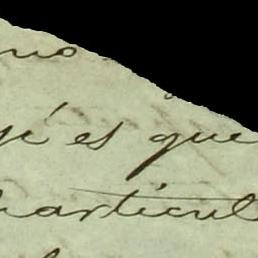 no
yé es que
particul